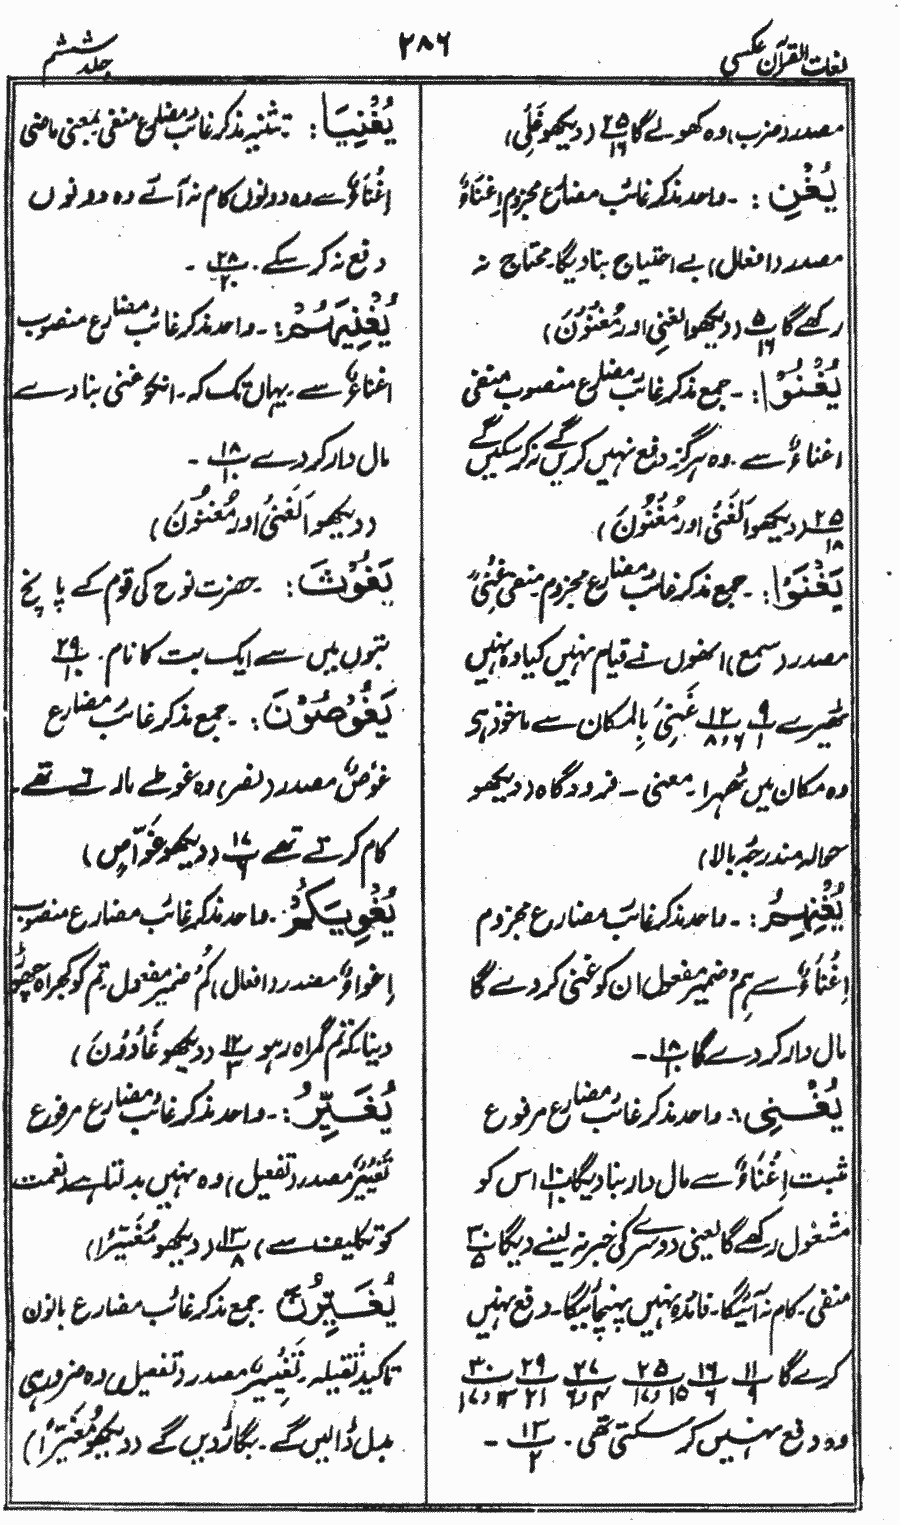 لغات القرآن عکسی
۲۸۶
جلد ششم
مصدر (ضرب) وہ کھولے گا ۲۵/۱۶ (دیکھو غَلِّی)
يُغْنِ : ۔ واحد مذکر غائب مضارع مجزوم اِغْنَاءٌ
مصدر (افعال) بے احتیاج بنا دیگا۔ محتاج نہ
رکھے گا ۵/۱۶ (دیکھو الغنی اور مُغْنُوْنَ)
يُغْنُوْا : ۔ جمع مذکر غائب مضارع منصوب منفی
اغناءٌ سے ۔ وہ ہرگز نہ دفع نہیں کریں گے نہ کر سکیں گے
۲۵/۱۸ (دیکھو اَلْغَنِیُّ اور مُغْنُوْنَ)
يَغْنَوْا : ۔ جمع مذکر غائب مضارع مجزوم منفی غِنًی
مصدر (سمع) انھوں نے قیام نہیں کیا وہ نہیں
ٹھیرے ۹/۱ ۱۲/۶،۸ غَنِیَ بِالمکان سے ماخوذ ہی
وہ مکان میں ٹھہرا ۔ معنی ۔ فرودگاہ (دیکھو
حوالہ مندرجہ بالا)
يُغْنِهِمُ : ۔ واحد مذکر غائب مضارع مجزوم
اِغْنَاءٌ سے ہِمْ ضمیر مفعول ان کو غنی کر دے گا
مال دار کر دے گا ۱۸/۱۰ ۔
يُغْنِی : ۔ واحد مذکر غائب مضارع مرفوع
مثبت اِغْنَاءٌ سے مال دار بنا دیگا اس کو
مشغول رکھے گا یعنی دوسرے کی خبر نہ لینے دیگا ۳۰/۵
منفی ۔ کام نہ آئیگا ۔ فائدہ نہیں پہنچائیگا ۔ دفع نہیں
کرے گا ۱۱/۹ ۱۶/۶ ۲۵/۱۵،۱۷ ۲۷/۴،۶ ۲۹/۲۱ ۳۰/۱۳،۱۷
وہ دفع نہیں کر سکتی تھی ۔ ۱۳/۲ ۔
يُغْنِيَا : ۔ تثنیہ مذکر غائب مضارع منفی بمعنی ماضی
اِغْنَاءٌ سے وہ دونوں کام نہ آئے وہ دونوں
دفع نہ کر سکے ۔ ۲۸/۲۰ ۔
يُغْنِيَهُمُ : ۔ واحد مذکر غائب مضارع منصوب
اغناءٌ سے ۔ یہاں تک کہ ۔ انکو غنی بنا دے
مال دار کر دے ۱۸/۱۰ ۔
(دیکھو اَلْغَنِیُّ اور مُغْنُوْنَ)
يَغُوْثَ : ۔ حضرت نوح کی قوم کے پانچ
بتوں میں سے ایک بت کا نام ۔ ۲۹/۱۰
يَغُوْصُوْنَ : ۔ جمع مذکر غائب مضارع
غَوْصٌ مصدر (نصر) وہ غوطے مارتے تھے ۔
کام کرتے تھے ۱۷/۶ (دیکھو غَوَّاصٍ)
يُغْوِيَكُمْ : ۔ واحد مذکر غائب مضارع منصوب
اِغواءٌ مصدر (افعال) کُمْ ضمیر مفعول تم کو گمراہ چھوڑ
دینا ۔ کہ تم گمراہ رہو ۱۲/۳ (دیکھو غَاوُوْنَ)
يُغَيِّرُ : ۔ واحد مذکر غائب مضارع مرفوع
تَغْيِيْرٌ مصدر (تفعیل) وہ نہیں بدلتا ہے (نعمت
کو تکلیف سے) ۱۳/۸ (دیکھو مُغَيِّرًا)
يُغَيِّرُنَّ : ۔ جمع مذکر غائب مضارع بانون
تاکید ثقیلہ ۔ تَغْيِيْرٌ مصدر (تفعیل) وہ ضرور ہی
بدل ڈالیں گے ۔ بگاڑ دیں گے (دیکھو مُغَيِّرًا)